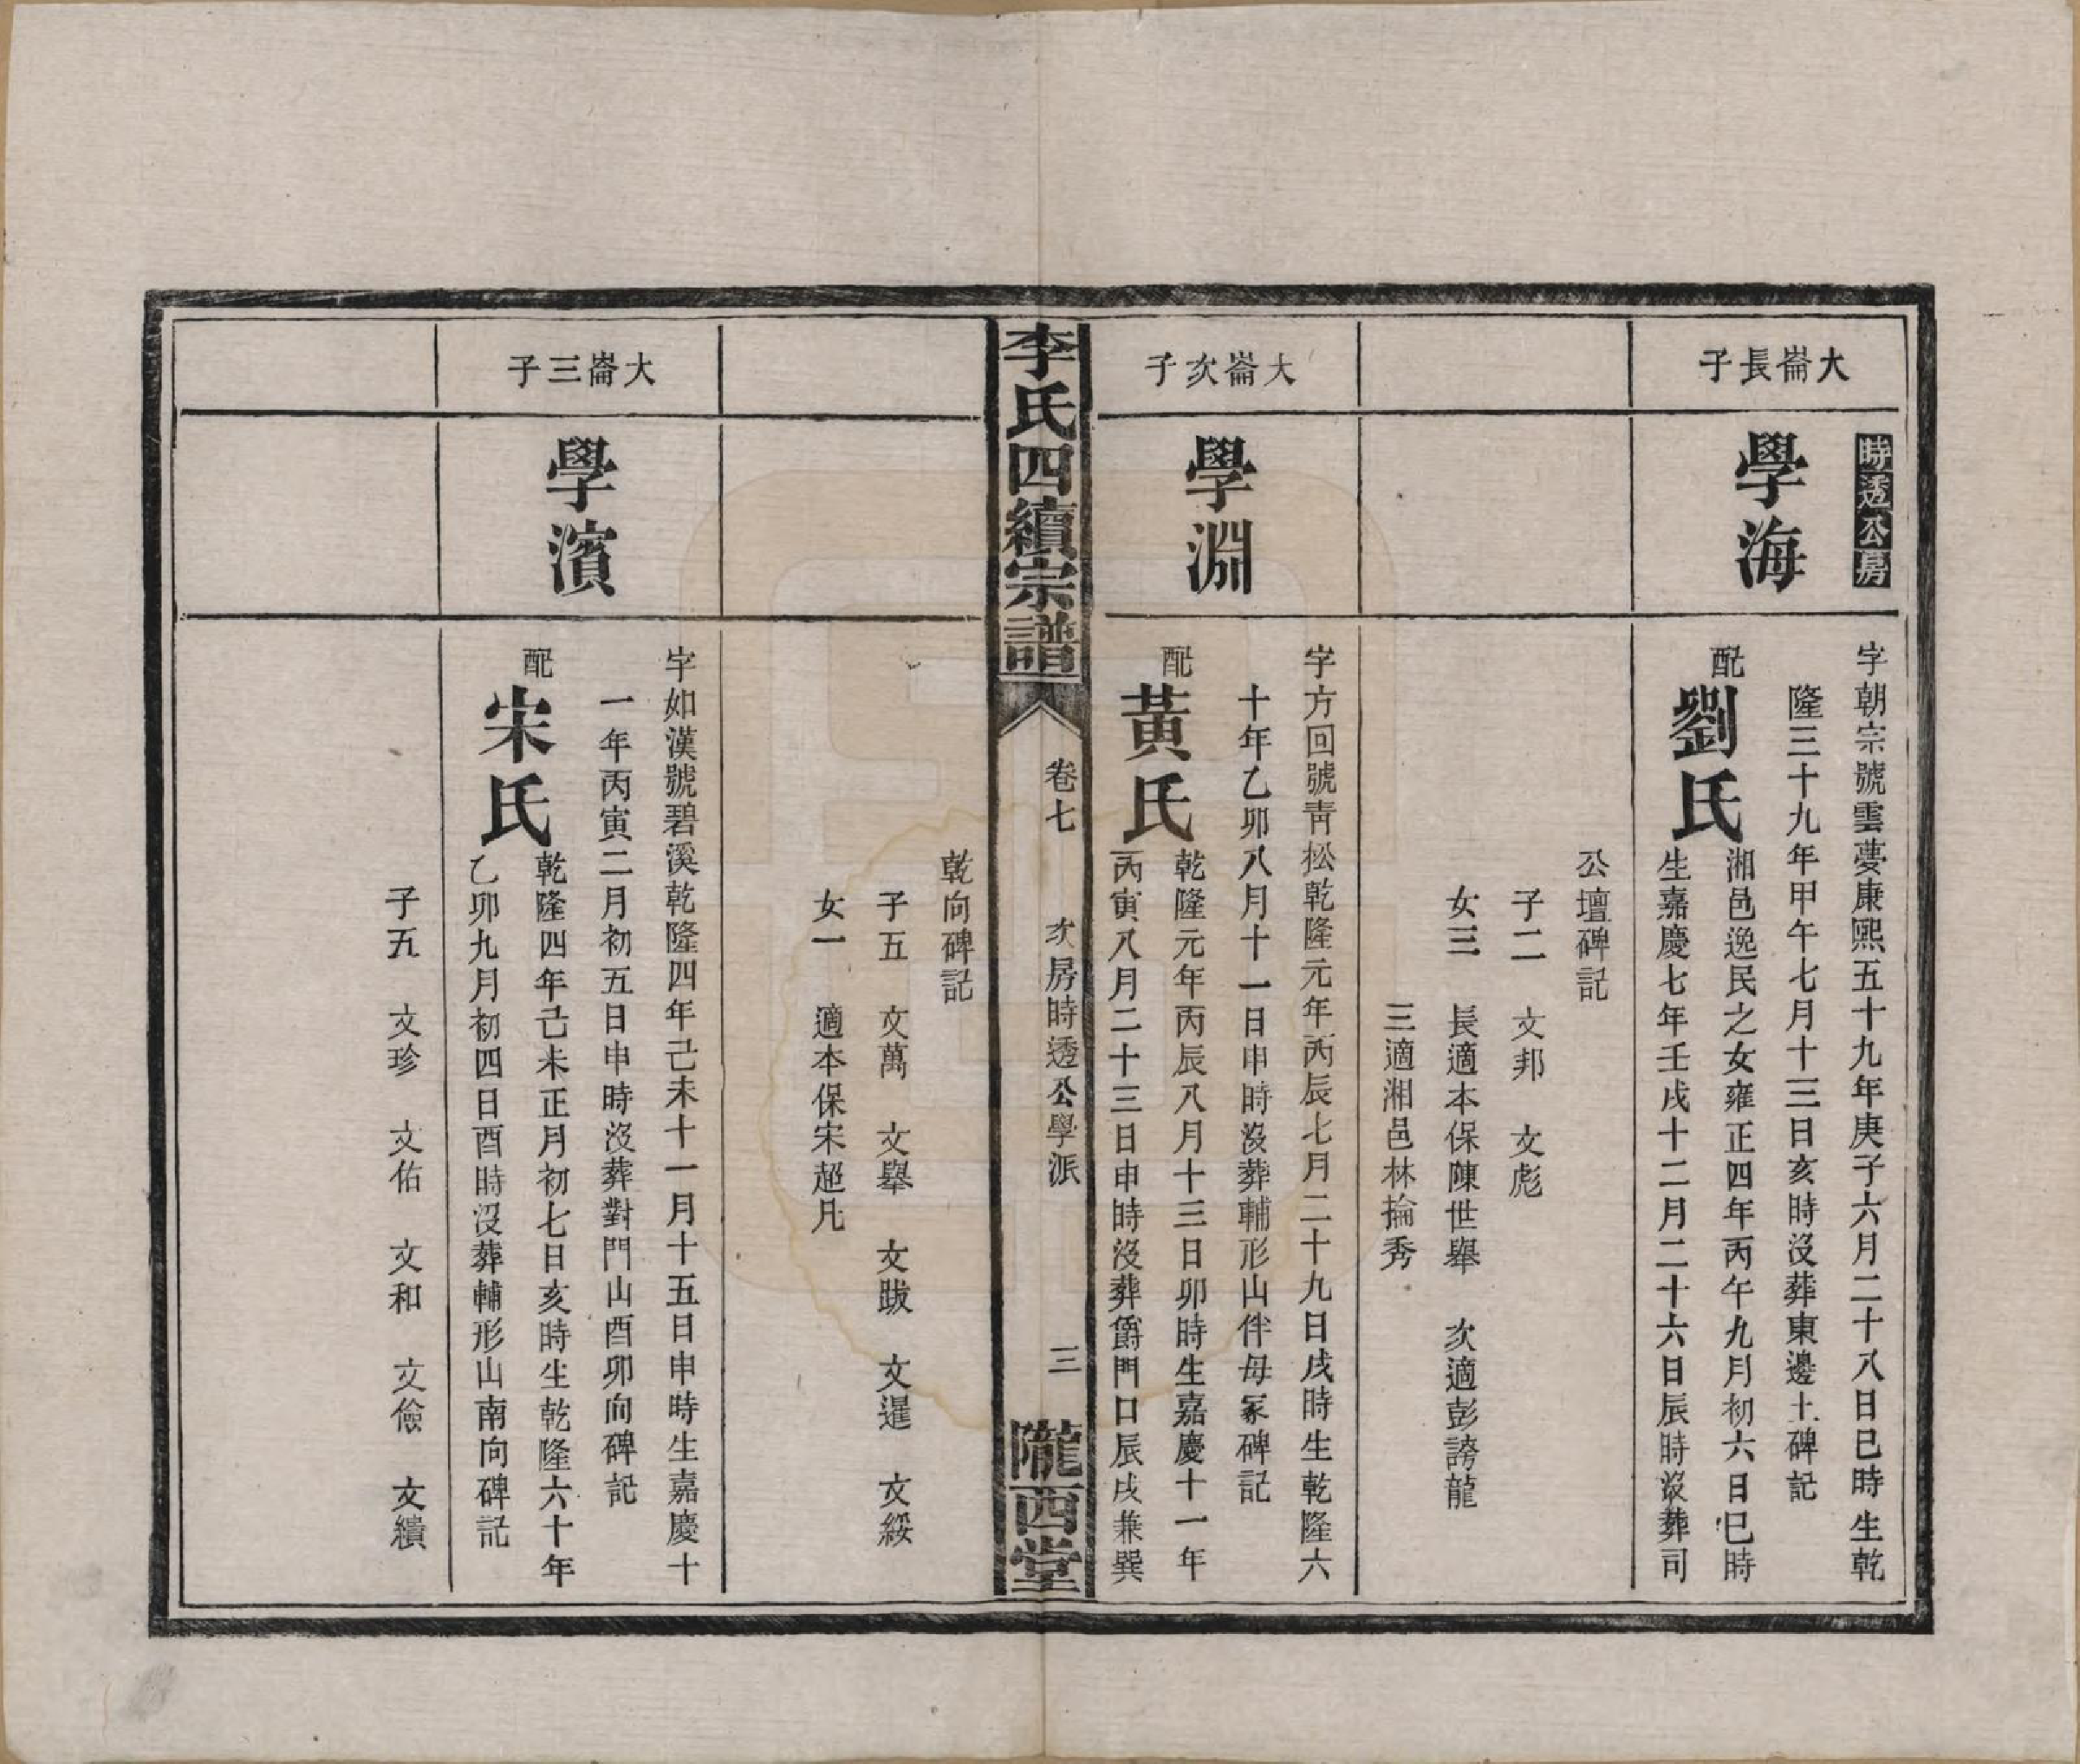 時透公房
大崙長子
學海
字朝宗號雲夢康熙五十九年庚子六月二十八日巳時生乾
隆三十九年甲午七月十三日亥時沒葬東邊土碑記
配
劉氏
湘邑逸民之女雍正四年丙午九月初六日巳時
生嘉慶七年壬戌十二月二十六日辰時沒葬司
公壇碑記
子二　文邦　文彪
女三　長適本保陳世舉　次適彭誇龍
三適湘邑林掄秀
大崙次子
學淵
字方回號青松乾隆元年丙辰七月二十九日戌時生乾隆六
十年乙卯八月十一日申時沒葬輔形山伴母冢碑記
配
黃氏
乾隆元年丙辰八月十三日卯時生嘉慶十一年
丙寅八月二十三日申時沒葬爵門口辰戌兼巽
李氏四續宗譜
卷七
次房時透公學派
三
隴西堂
乾向碑記
子五　文萬　文舉　文跋　文暹　文綏
女一　適本保宋超凡
大崙三子
學濱
字如漢號碧溪乾隆四年己未十一月十五日申時生嘉慶十
一年丙寅二月初五日申時沒葬對門山酉卯向碑記
配
宋氏
乾隆四年己未正月初七日亥時生乾隆六十年
乙卯九月初四日酉時沒葬輔形山南向碑記
子五　文珍　文佑　文和　文儉　文績